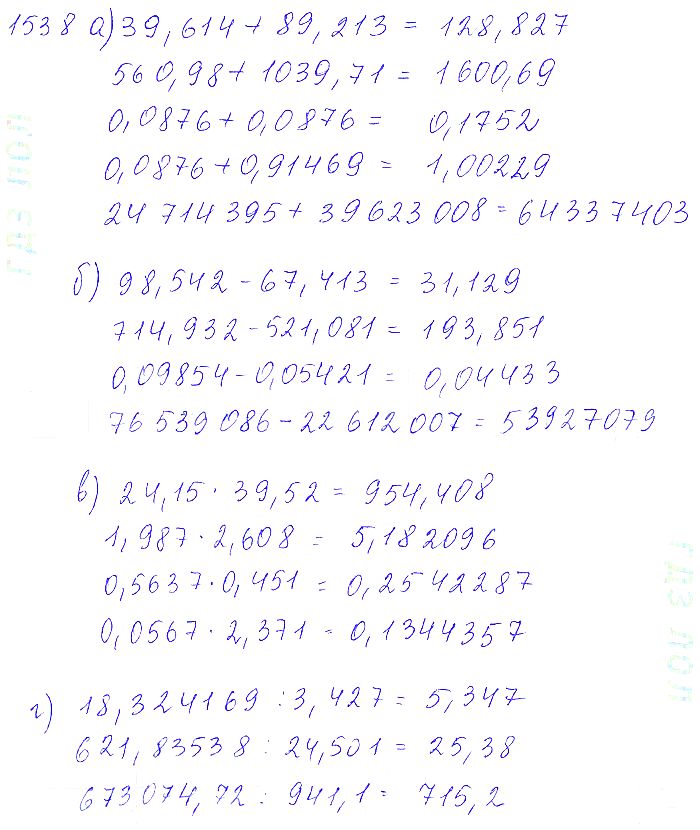 1538 а) 39,614 + 89,213 = 128,827
560,98 + 1039,71 = 1600,69
0,0876 + 0,0876 = 0,1752
0,0876 + 0,91469 = 1,00229
24 714 395 + 39 623 008 = 64337403
б) 98,542 - 67,413 = 31,129
714,932 - 521,081 = 193,851
0,09854 - 0,05421 = 0,04433
76 539 086 - 22 612 007 = 53927079
в) 24,15 · 39,52 = 954,408
1,987 · 2,608 = 5,182096
0,5637 · 0,451 = 0,2542287
0,0567 · 2,371 = 0,1344357
г) 18,324169 : 3,427 = 5,347
621,83538 : 24,501 = 25,38
673074,72 : 941,1 = 715,2